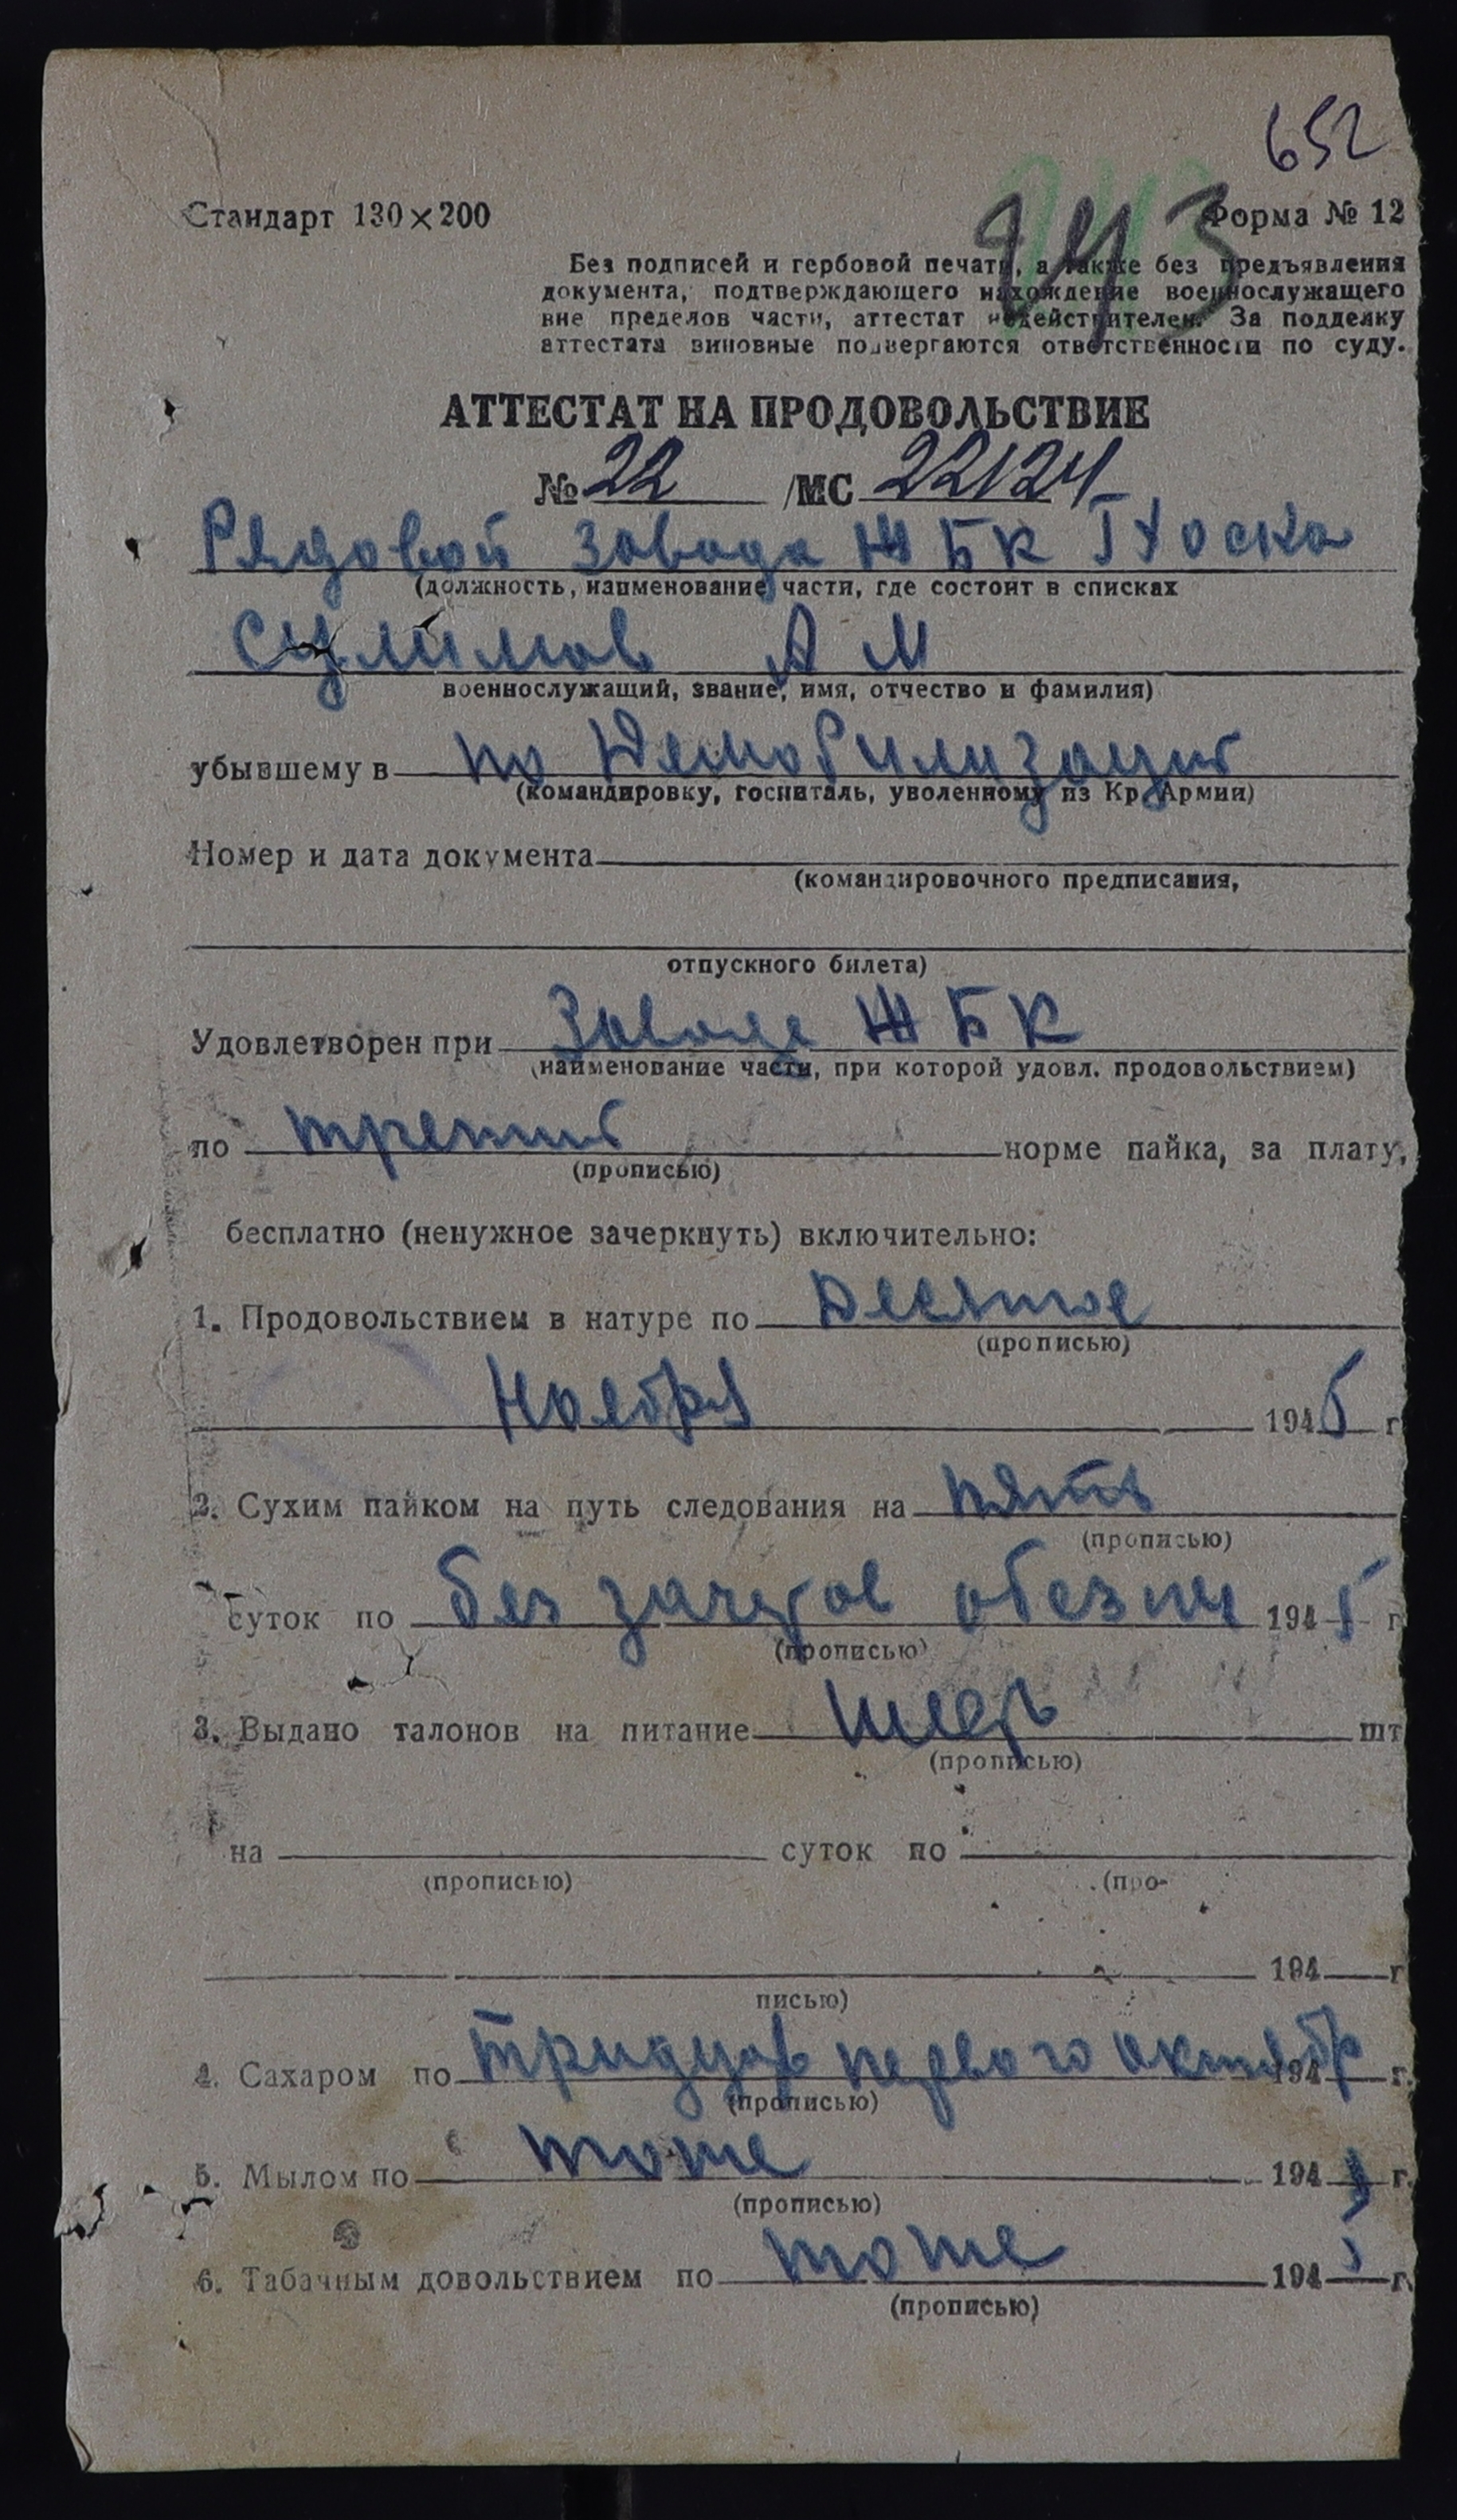 652
243
Стандарт 130×200 Форма № 12
Без подписей и гербовой печати, а также без предъявления
документа, подтверждающего нахождение военнослужащего
вне пределов части, аттестат недействителен. За подделку
аттестата виновные подвергаются ответственности по суду.
АТТЕСТАТ НА ПРОДОВОЛЬСТВИЕ
№ 22 /МС 22124
Рядовой завода ЖБК
(должность, наименование части, где состоит в списках
Сулимов А М
военнослужащий, звание, имя, отчество и фамилия)
убывшему в по Демобилизации
(командировку, госпиталь, уволенному из Кр. Армии)
Номер и дата документа
(командировочного предписания,
отпускного билета)
Удовлетворен при Заводе ЖБК
(наименование части, при которой удовл. продовольствием)
по третий норме пайка, за плату,
(прописью)
бесплатно (ненужное зачеркнуть) включительно:
1. Продовольствием в натуре по Десятое
(прописью)
Ноября 1945 г
2. Сухим пайком на путь следования на пять
(прописью)
суток по без 1945 г
(прописью)
3. Выдано талонов на питание шт
(прописью)
на суток по
(прописью) (про-
194 г
писью)
4. Сахаром по Тридцать первого октябр 194 г.
(прописью)
5. Мылом по тоже 194 г.
(прописью)
6. Табачным довольствием по тоже 194 г.
(прописью)